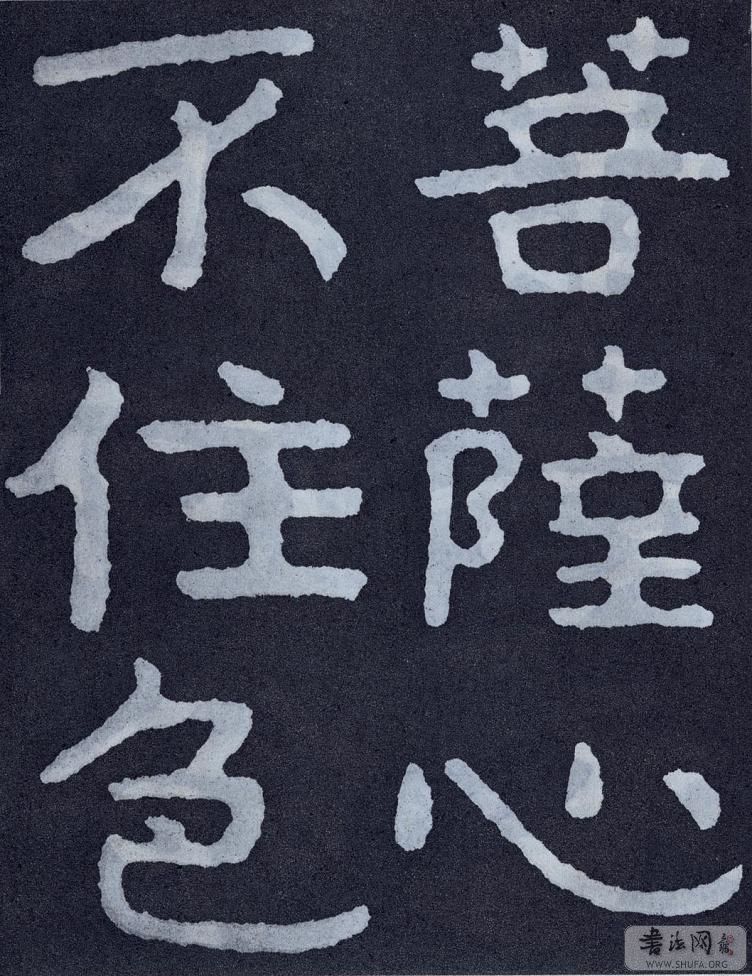 菩薩心
不住色
書法网
WWW.SHUFA.ORG